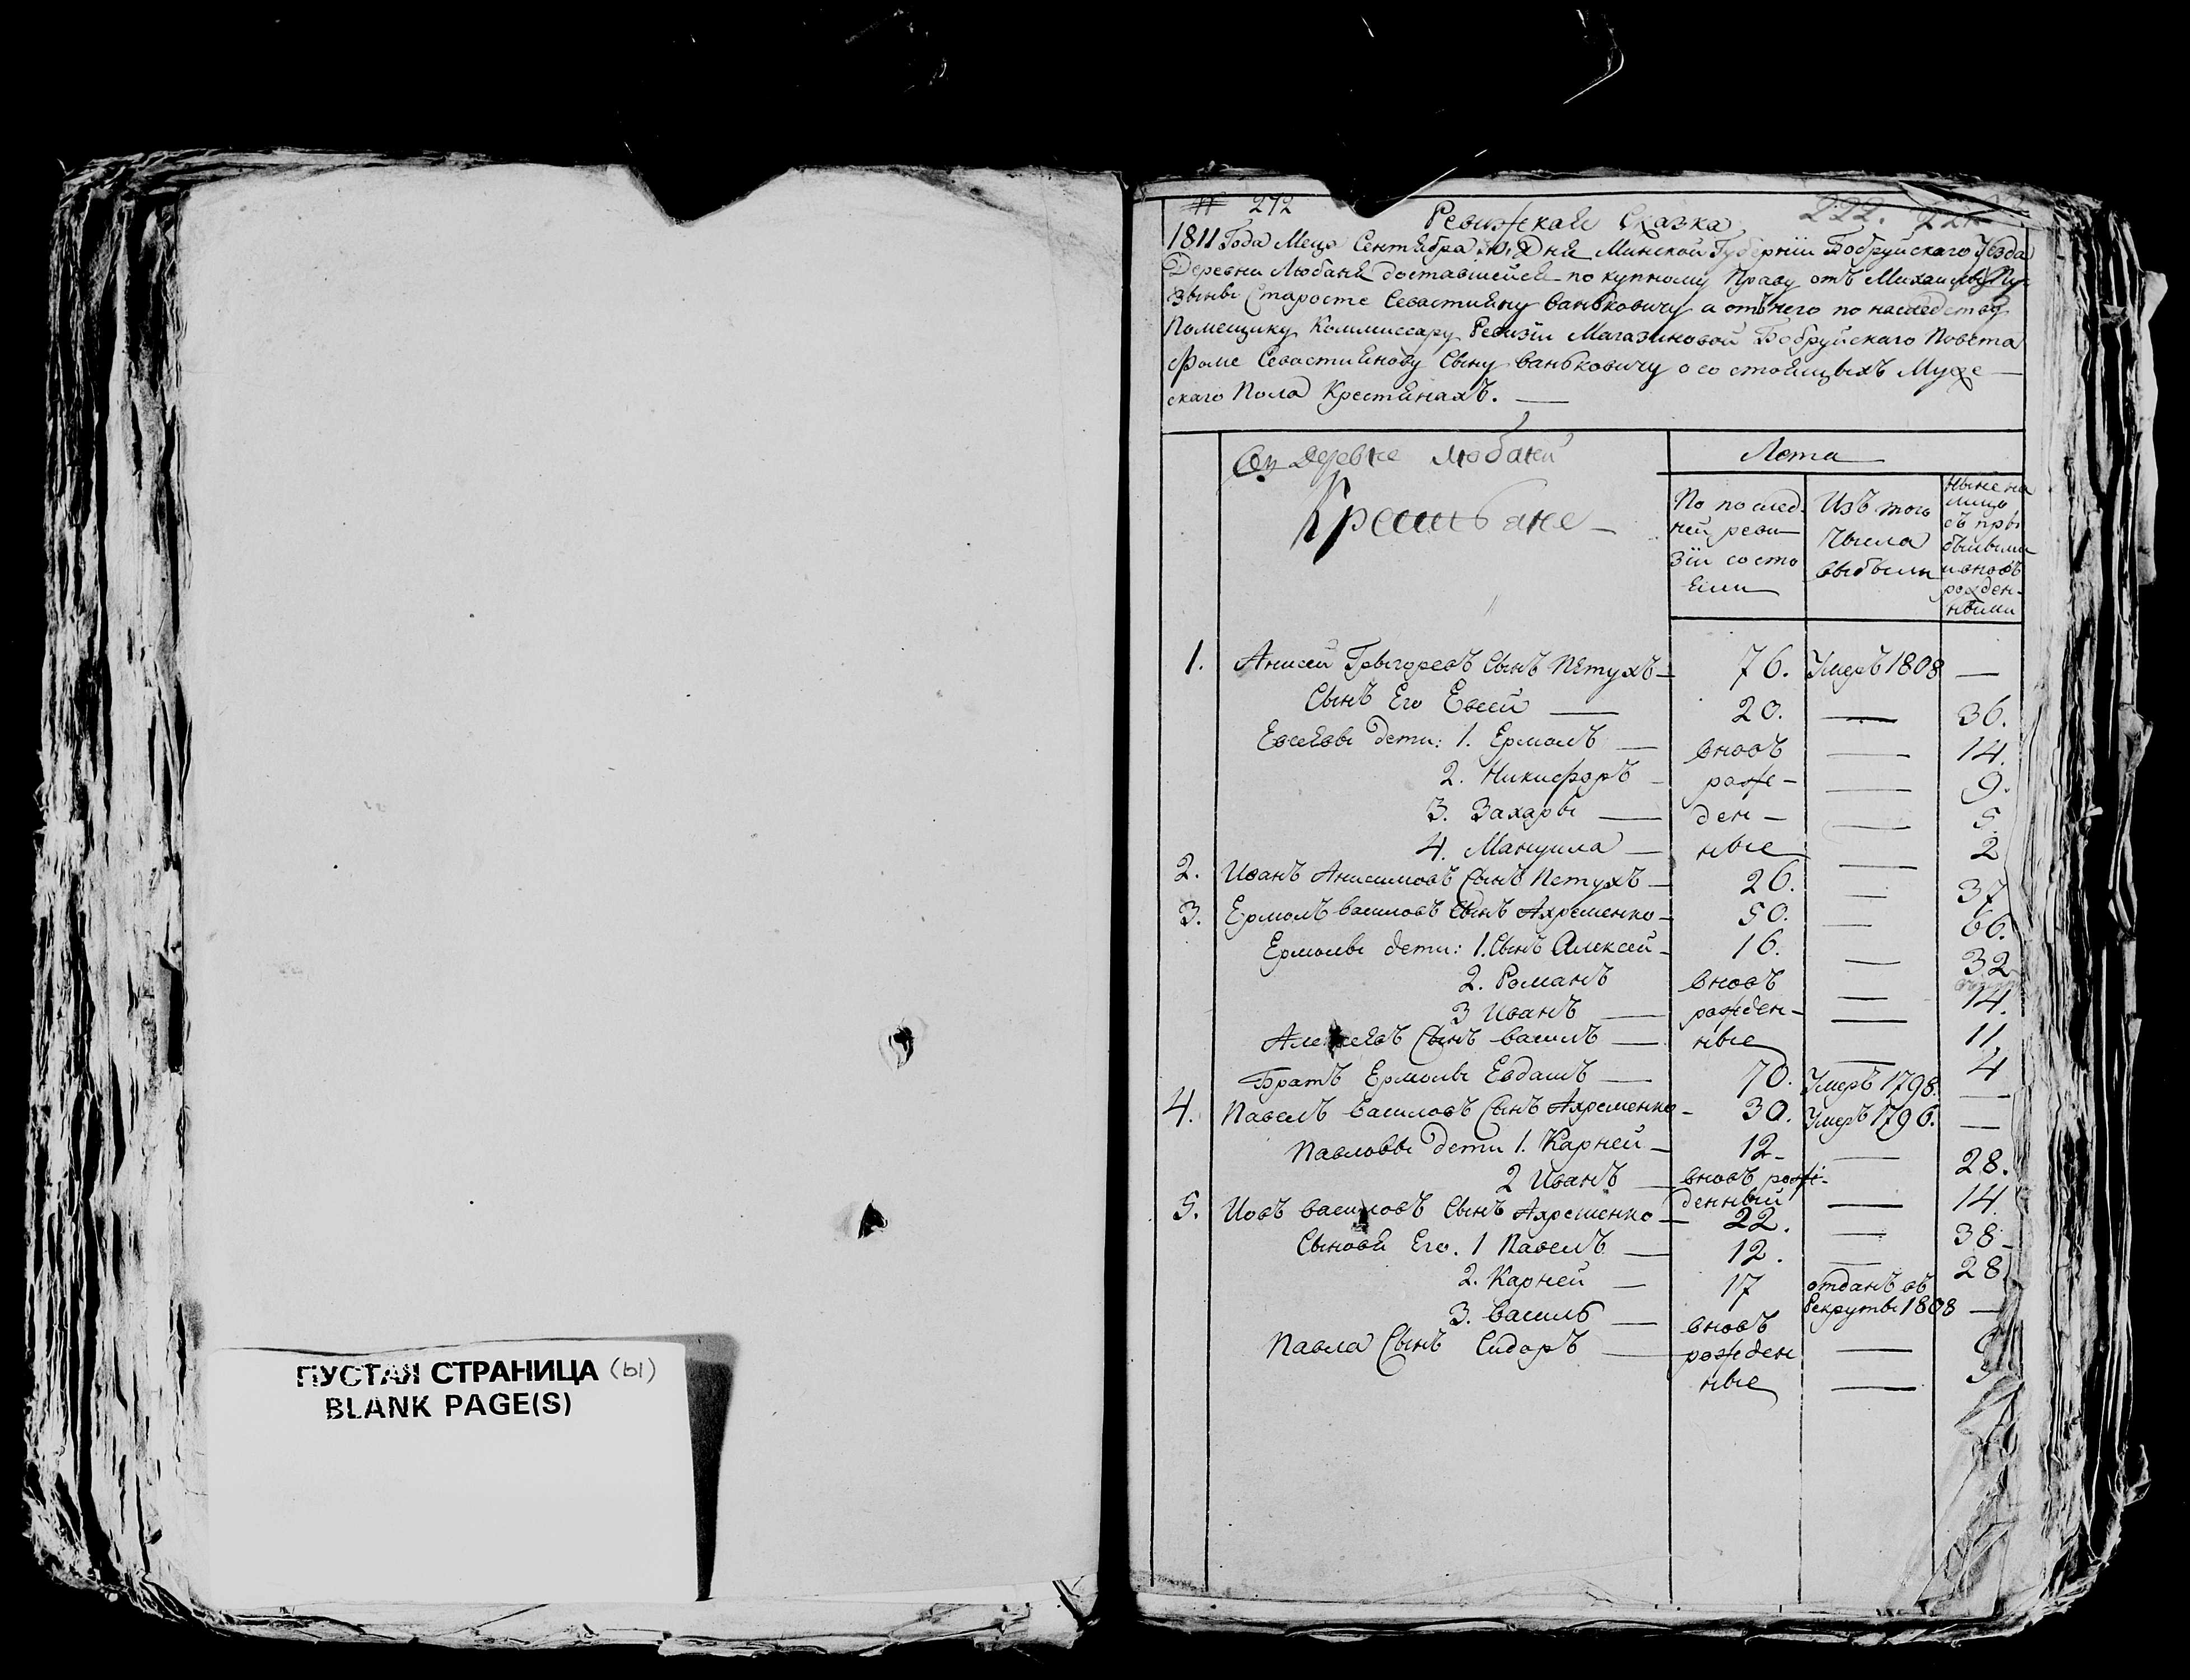 ПУСТАЯ СТРАНИЦА (ы)
BLANK PAGE(S)
№ 272
222.
Ревижская Сказка
1811 Года Меца Сентября Дня Минской Губернiи Бобруйскаго Уезда
Деревни Любаня доставшейся по купному Праву отъ
Старосте Севастияну Ваньковичу а отънего по наследству
Помещику Коммиссару Ревизiи Магазиновой Бобруйскаго Повета
Фоме Севастиянову Сыну Ваньковичу о состоящыхъ Муже
скаго Пола Крестянахъ.
Деревне Любаней
Крестьяне
Лета
По послед-
ней реви-
зiи состо
яли
Изъ того
Числа
выбыли
Ныне на
лицо
съ при
былыми
и вновъ
рожден-
ными
1. Анисей Грыгоревъ Сынъ Петухъ 76. Умеръ 1808 —
Сынъ Его Евсей — 20. — 36.
Евсеявы дети: 1. Ермолъ — вновъ — 14.
2. Никифоръ — рожe- — 9.
3. Захары — ден- — 5.
4. Мануила — ные — 2
2. Иванъ Анисимовъ Сынъ Петухъ — 26. — 37
3. Ермолъ Василовъ Сынъ Ахременко — 50. — 66.
Ермолы дети: 1. Сынъ Алексей — 16. — 32
2. Романъ вновъ — 14.
3 Иванъ — рожден- — 11
Алексеявъ Сынъ Василъ — ные — 4
Братъ Ермолы Евдашъ — 70. Умеръ 1798. —
4. Павелъ Василовъ Сынъ Ахременко — 30. Умеръ 1796. —
Павловы дети 1. Карней — 12 — 28.
2 Иванъ — вновъ рож-
денный — 14
5. Иовъ Василовъ Сынъ Ахременко — 22. — 38
Сыновя Его. 1 Павелъ — 12. — 28
2. Карней — 17 отданъ въ
Рекруты 1808 —
3. Василь — вновъ
Павла Сынъ Сидоръ — рожден —
ные —